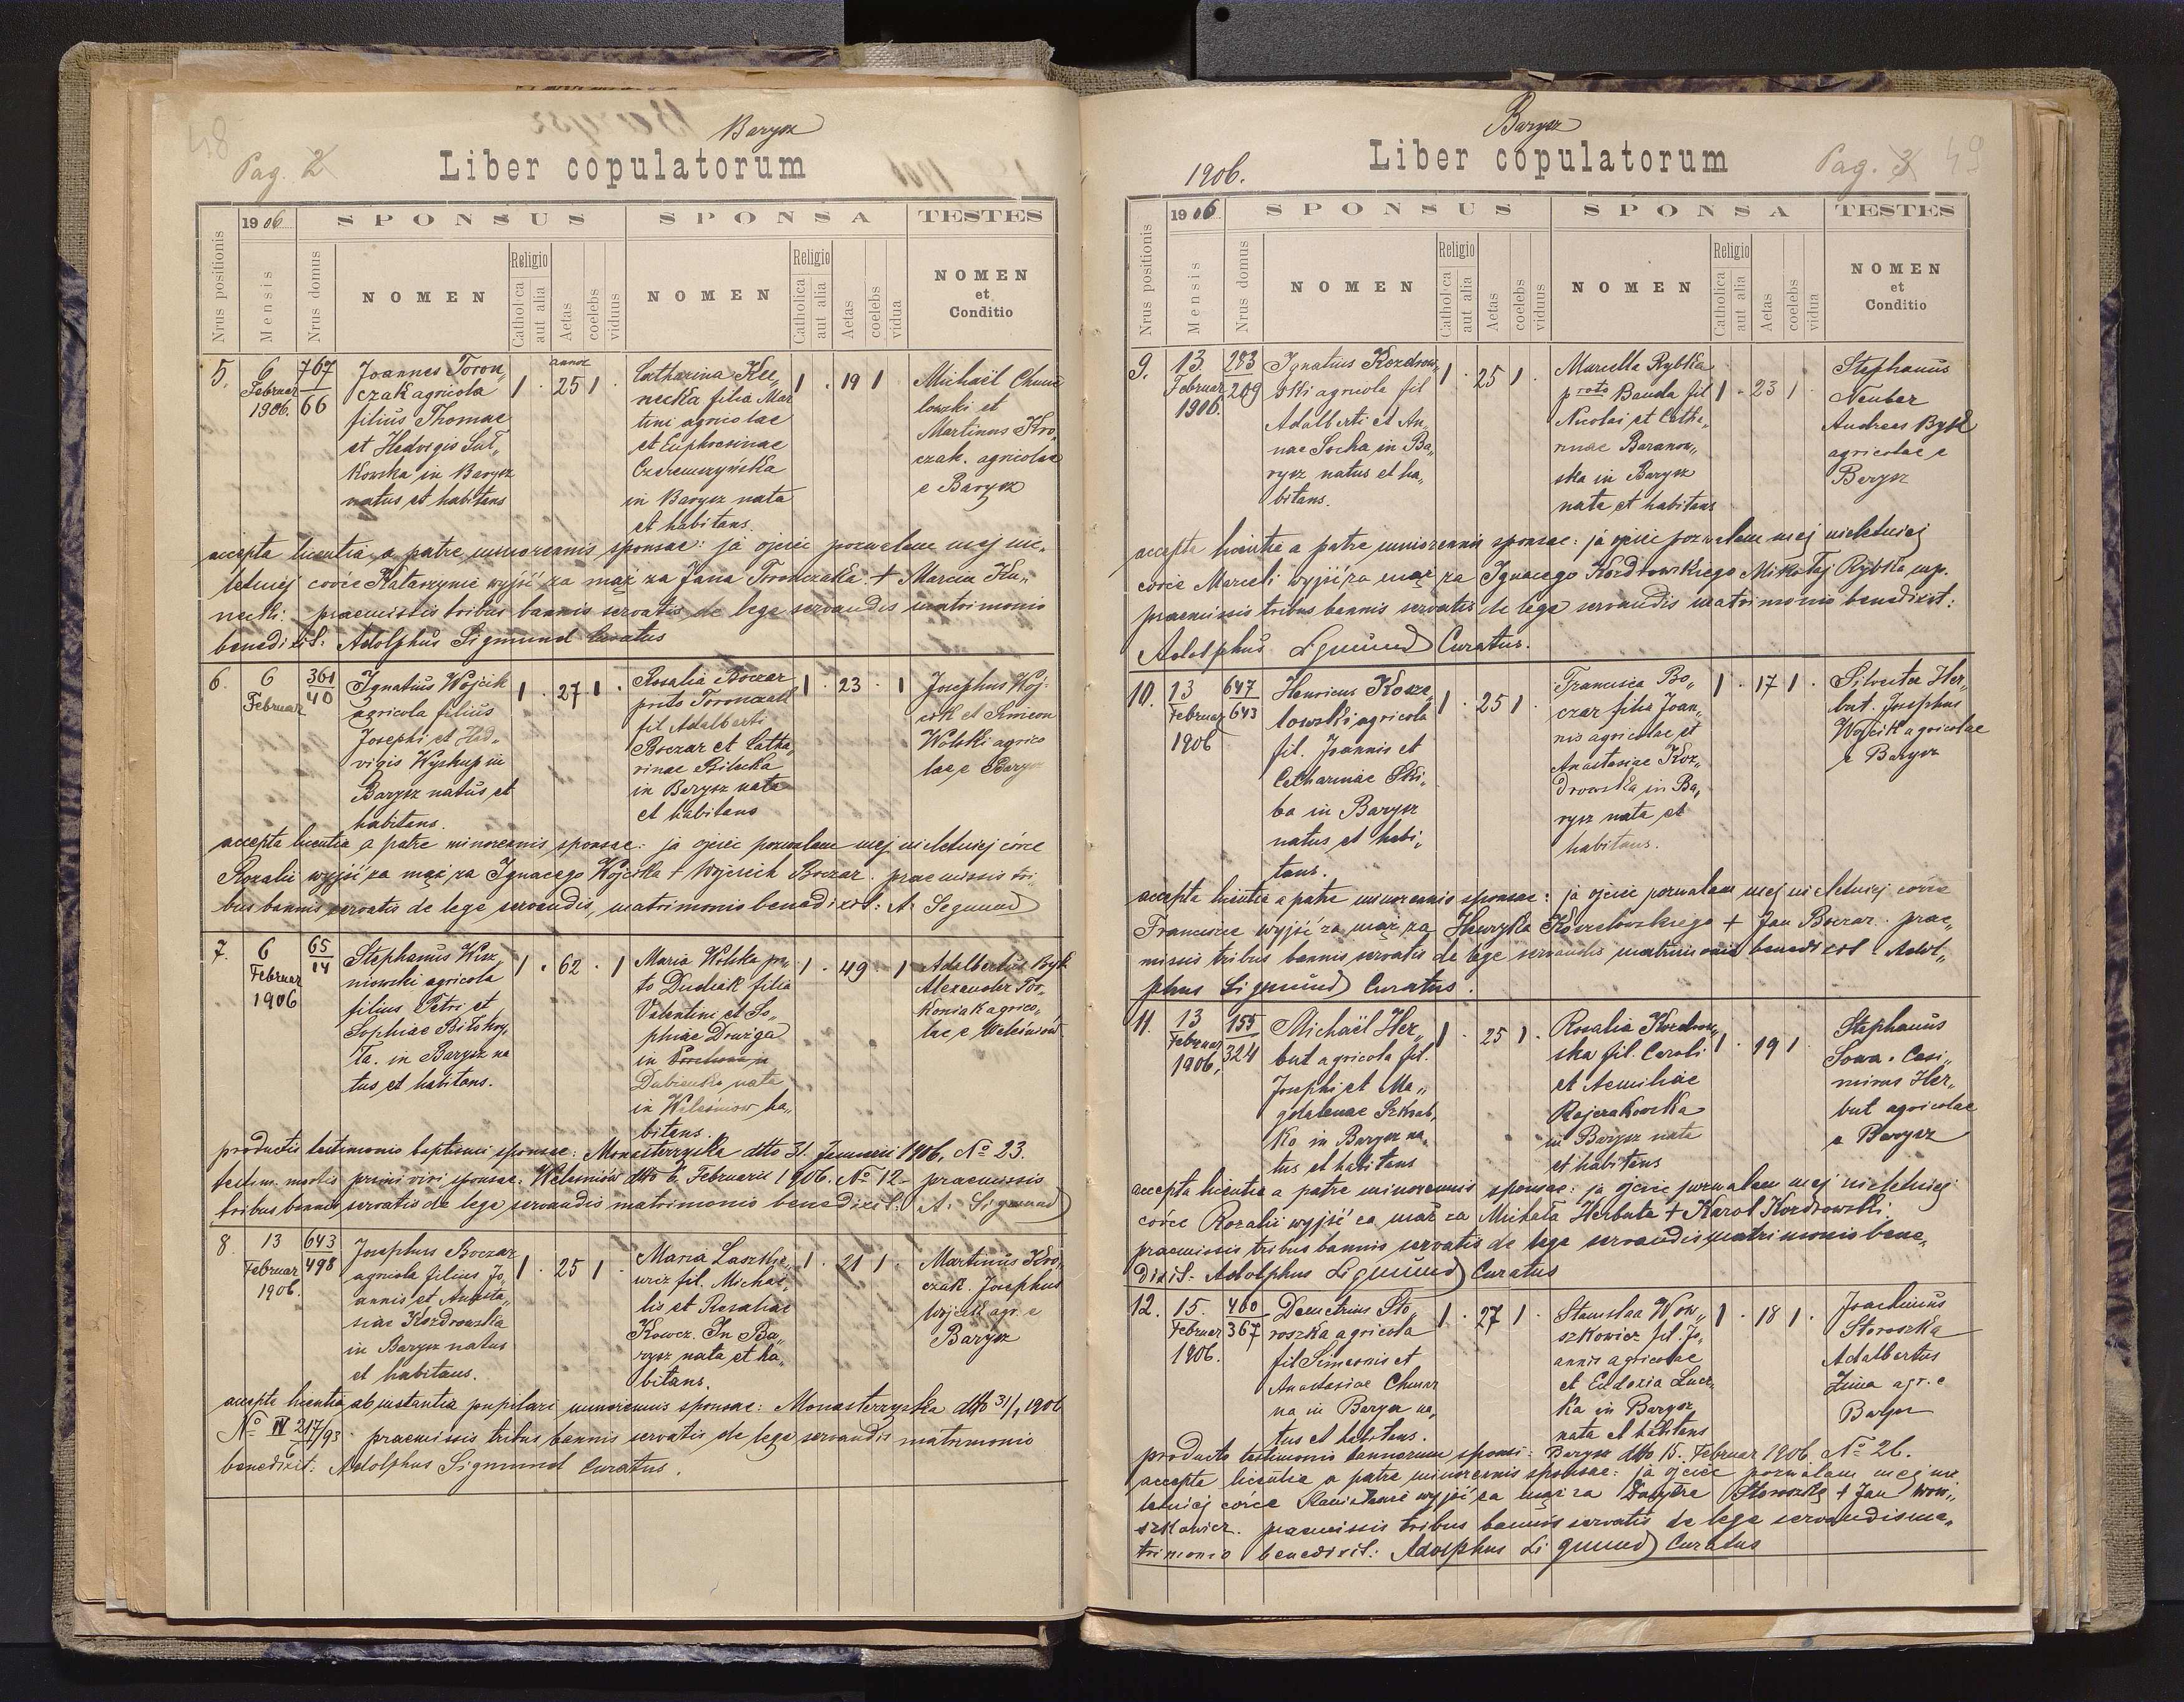 Barysz
Pag. 2
Liber copulatorum
1906
SPONSUS
SPONSA
TESTES
Nrus positionis
Mensis
Nrus domus
NOMEN
Religio
Catholica
aut alia
Aetas
coelebs
viduus
NOMEN
Religio
Catholica
aut alia
Aetas
coelebs
vidua
NOMEN
et
Conditio
5.
6
Februar
1906.
767
66
Joannes Toron„
czak agricola
filius Thomae
et Hedvigis Sut„
kowska in Barysz
natus et habitans
1
25
1
Catharina Ku„
necka filia Mar
tini agricolae
et Euphrosinae
Czeremszyńska
in Barysz nata
et habitans.
1
19
1
Michaël
lowski et
Martinus Kro„
czak. agricolae
e Barysz
accepta licentia a patre minorennis sponsae: ja ojciec pozwalam mej nie„
letniej córce Katarzynie wyjść za mąż za Jana Toronczaka. + Marcin Ku„
necki: praemissis tribus bannis servatis de lege servandis matrimonio
benedixit: Adolphus Sigmund Curatus
6.
6
Februar
361
40
Ignatius Wojcik
agricola filius
Josephi et Hed„
vigis Wyskup in
Barysz natus et
habitans.
1
27
1
Rosalia Boczar
proto Toronczak
fil Adalberti
Boczar et Catha„
rinae Bilecka
in Barysz nata
et habitans
1
23
1
Josephus Woj„
cik et Simeon
Wolski agrico
lae e Barysz
accepta licentia a patre minorennis sponsae: ja ojciec pozwalam mej nieletniej córce
Rozalii wyjść za mąż za Ignacego Wojcika + Wojciech Boczar. praemissis tri„
bus bannis servatis de lege servandis, matrimonio benedixit: A. Segmund
7.
6
Februar
1906
65
14
Stephanus Wisz„
niowski agricola
filius Petri et
Sophiae
ta. in Barysz na
tus et habitans.
1
62
1
Maria Wolska pro
to Dudiak filia
Valentini et So„
phiae Drozga
in
Dubienko nata
in Weleśniow ha„
bitans.
1
49
1
Adalbertus Byk
Alexander Tor„
koniak agrico„
lae e Weleśniow
productis testimonio baptismi sponsae: Monasterzyska dtto 31. Januarii 1906, No 23.
testim. mortis primi viri sponsae: Weleśniów dtto 6. Februarii 1906. No 12. praemissis
tribus bannis servatis de lege servandis matrimonio benedixit: A. Sigmund
8
13
Februar
1906.
643
498
Josephus Boczar
agricola filius Jo„
annis et Anasta„
siae Kozdrowska
in Barysz natus
et habitans.
1
25
1
Maria Laszkie„
wicz fil. Michae„
lis et Rosaliae
Kowcz. In Ba„
rysz nata et ha„
bitans.
1
21
1
Martinus Kro„
czak. Josephus
Wojcik agr. e
Barysz
accepta licentia ab instantia pupilari minorennis sponsae: Monasterzyska dtto 31/1 1906
No IV 217/93 praemissis tribus bannis servatis de lege servandis matrimonio
benedixit: Adolphus Sigmund Curatus.
Barysz
1906.
Liber copulatorum
Pag. 3
49
1906
SPONSUS
SPONSA
TESTES
Nrus positionis
Mensis
Nrus domus
NOMEN
Religio
Catholica
aut alia
Aetas
coelebs
viduus
NOMEN
Religio
Catholica
aut alia
Aetas
coelebs
vidua
NOMEN
et
Conditio
9.
13
Februar
1906.
283
209
Ignatius Kozdrow„
ski agricola fil
Adalberti et An„
nae Socha in Ba„
rysz natus et ha„
bitans.
1
25
1
Marcella Rybka
proto Banda fil
Nicolai et Catha„
rinae Baranow„
ska in Barysz
nata et habitans
1
23
1
Stephanus
Neuber
Andreas Byk
agricolae e
Barysz
accepta licentia a patre minorennis sponsae: ja ojciec pozwalam mej nieletniej
córce Marceli wyjść za mąż za Ignacego Kozdrowskiego Mikołaj Rybka mp.
praemissis tribus bannis servatis de lege servandis matrimonio benedixit:
Adolphus Sigmund Curatus.
10.
13
Februar
1906
647
643
Henricus Kosze„
lowski agricola
fil. Joannis et
Catharinae Ski„
ba in Barysz
natus et habi„
tans.
1
25
1
Francisca Bo„
czar filia Joan„
nis agricolae et
Anastasiae Koz„
drowska in Ba„
rysz nata et
habitans.
1
17
1
Silvester Her„
but. Josephus
Wojcik agricolae
e Barysz
accepta licentia a patre minorennis sponsae: ja ojciec pozwalam mej nieletniej córce
Francisce wyjść za mąż za Henryka Koszelowskiego + Jan Boczar. prae„
missis tribus bannis servatis de lege servandis matrimonio benedixit Adol„
phus Sigmund Curatus.
11.
13
Februar
1906,
155
324
Michaël Her„
but agricola fil.
Josephi et Ma„
gdalenae Szkrab„
ka in Barysz na„
tus et habitans
1
25
1
Rosalia Kozdrow„
ska fil. Caroli
et Aemiliae
Rajczakowska
in Barysz nata
et habitans
1
19
1
Stephanus
Sowa. Casi„
mirus Her„
but agricolae
e Barysz
accepta licentia a patre minorennis sponsae: ja ojciec pozwalam mej nieletniej
córce Rozalii wyjść za mąż za Michała Herbuta + Karol Kozdrowski.
praemissis tribus bannis servatis de lege servandis matrimonio bene„
dixit. Adolphus Sigmund Curatus
12.
15.
Februar
1906.
400
367
Demetrius Sto„
roszka agricola
fil Simeonis et
Anastasiae
na in Barysz na„
tus et habitans.
1
27
1
Stanislaa Wow„
szkowicz fil. Jo„
annis agricolae
et Eudoxia
ka in Barysz
nata et habitans
1
18
1
Joachimus
Storoszka
Adalbertus
Zima agr. e
Barysz
producto testimonio bannorum sponsi: Barysz dtto 15. Februar 1906. No 26.
accepta licentia a patre minorennis sponsae: ja ojciec pozwalam mej nie
letniej córce Stanisławie wyjść za mąż za Dmytra Storoszkę + Jan Wow„
szkowicz. praemissis tribus bannis servatis de lege servandis ma„
trimonio benedixit: Adolphus Sigmund Curatus